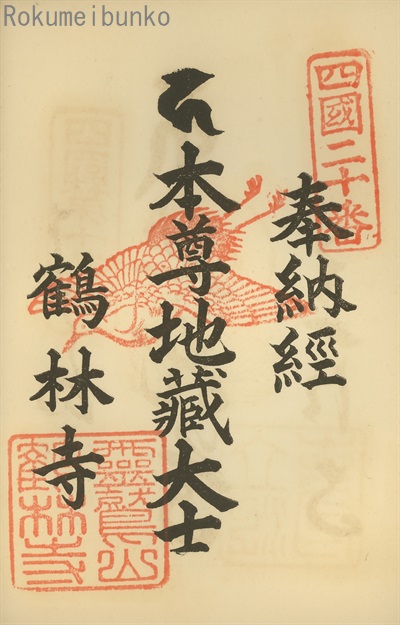 Rokumeibunko
四國二十番
奉納經
本尊地藏大士
鶴林寺
靈鷲山
鶴林寺